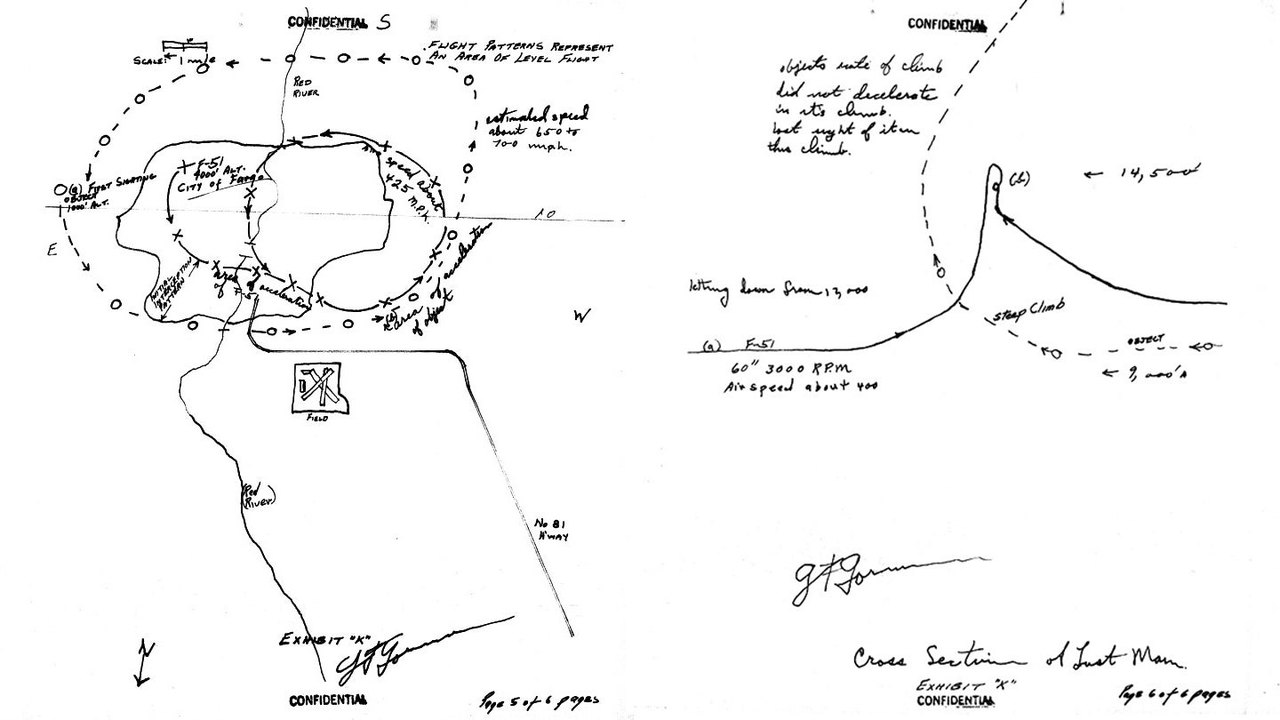 CONFIDENTIAL S
FLIGHT PATTERNS REPRESENT
AN AREA OF LEVEL FLIGHT
SCALE: 1 mile
RED
RIVER
estimated speed
about 650 to
700 mph.
F-51
4000' ALT.
CITY OF Fargo
(a) FIRST SIGHTING
OBJECT
1000' ALT.
speed about
425 M.P.H.
10
E
W
INITIAL
INTERCEPTION
PATTERN
area
of acceleration
of
F-51
(b)
area of acceleration
of object
FIELD
(Red
River)
No 81
H'WAY
N
EXHIBIT "K"
G F Gorman
CONFIDENTIAL
Page 5 of 6 pages
CONFIDENTIAL
objects rate of climb
did not decelerate
in it's climb.
lost sight of it in
this climb.
(b)
← 14,500'
letting down from 13,000
steep climb
(a) F-51
OBJECT
60" 3000 R.P.M
Air speed about 400
← 9,000' A
G F Gorman
Cross Section of Last Man.
EXHIBIT "K"
CONFIDENTIAL
Page 6 of 6 pages